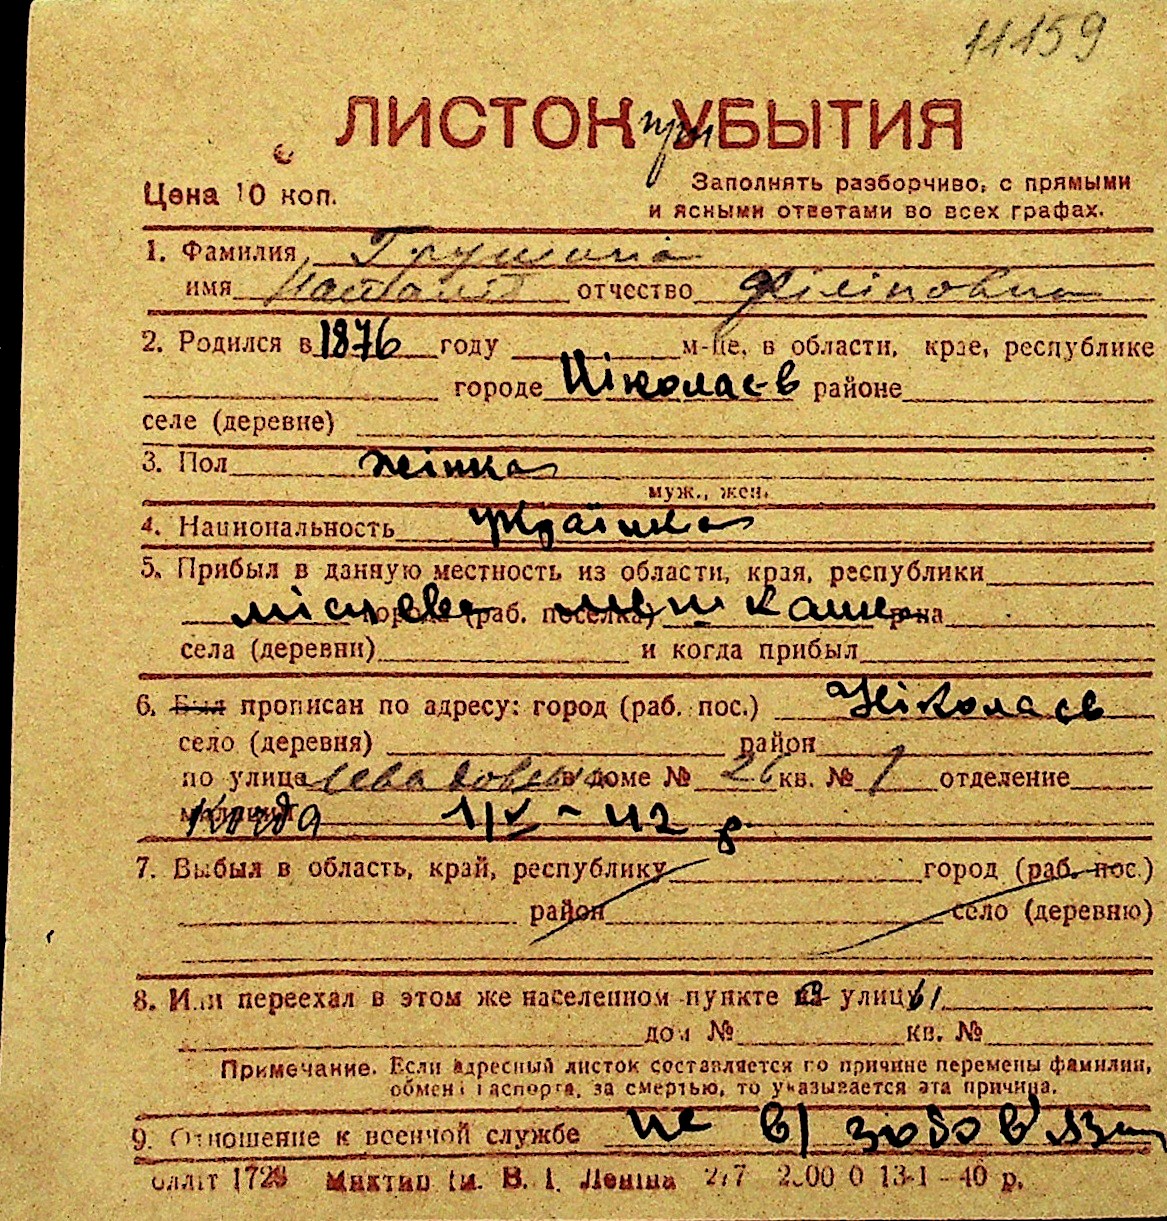 11159
ЛИСТОК при УБЫТИЯ
Цена 10 коп.
Заполнять разборчиво, с прямыми
и ясными ответами во всех графах.
1. Фамилия
имя отчество Філіповна
2. Родился в 1876 году м-це, в области, крае, республике
городе Ніколаєв районе
селе (деревне)
3. Пол жінка
муж., жен.
4. Национальность українка
5. Прибыл в данную местность из области, края, республики
місцева города (раб. поселка) мешканка р-на
села (деревни) и когда прибыл
6. Был прописан по адресу: город (раб. пос.) Ніколаєв
село (деревня) район
по улице в доме № 26 кв. № 1 отделение
милиции Когда 1/V - 42 р.
7. Выбыл в область, край, республику город (раб. пос.)
район село (деревню)
8. Или переехал в этом же населенном пункте с улицы
дом № кв. №
Примечание. Если адресный листок составляется по причине перемены фамилии,
обмена паспорта, за смертью, то указывается эта причина.
9. Отношение к военной службе не в/ зобов'яз
1728 ім. В. І. Леніна 2/7 13-1-40 р.